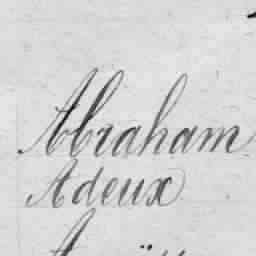 Abraham
Adeux